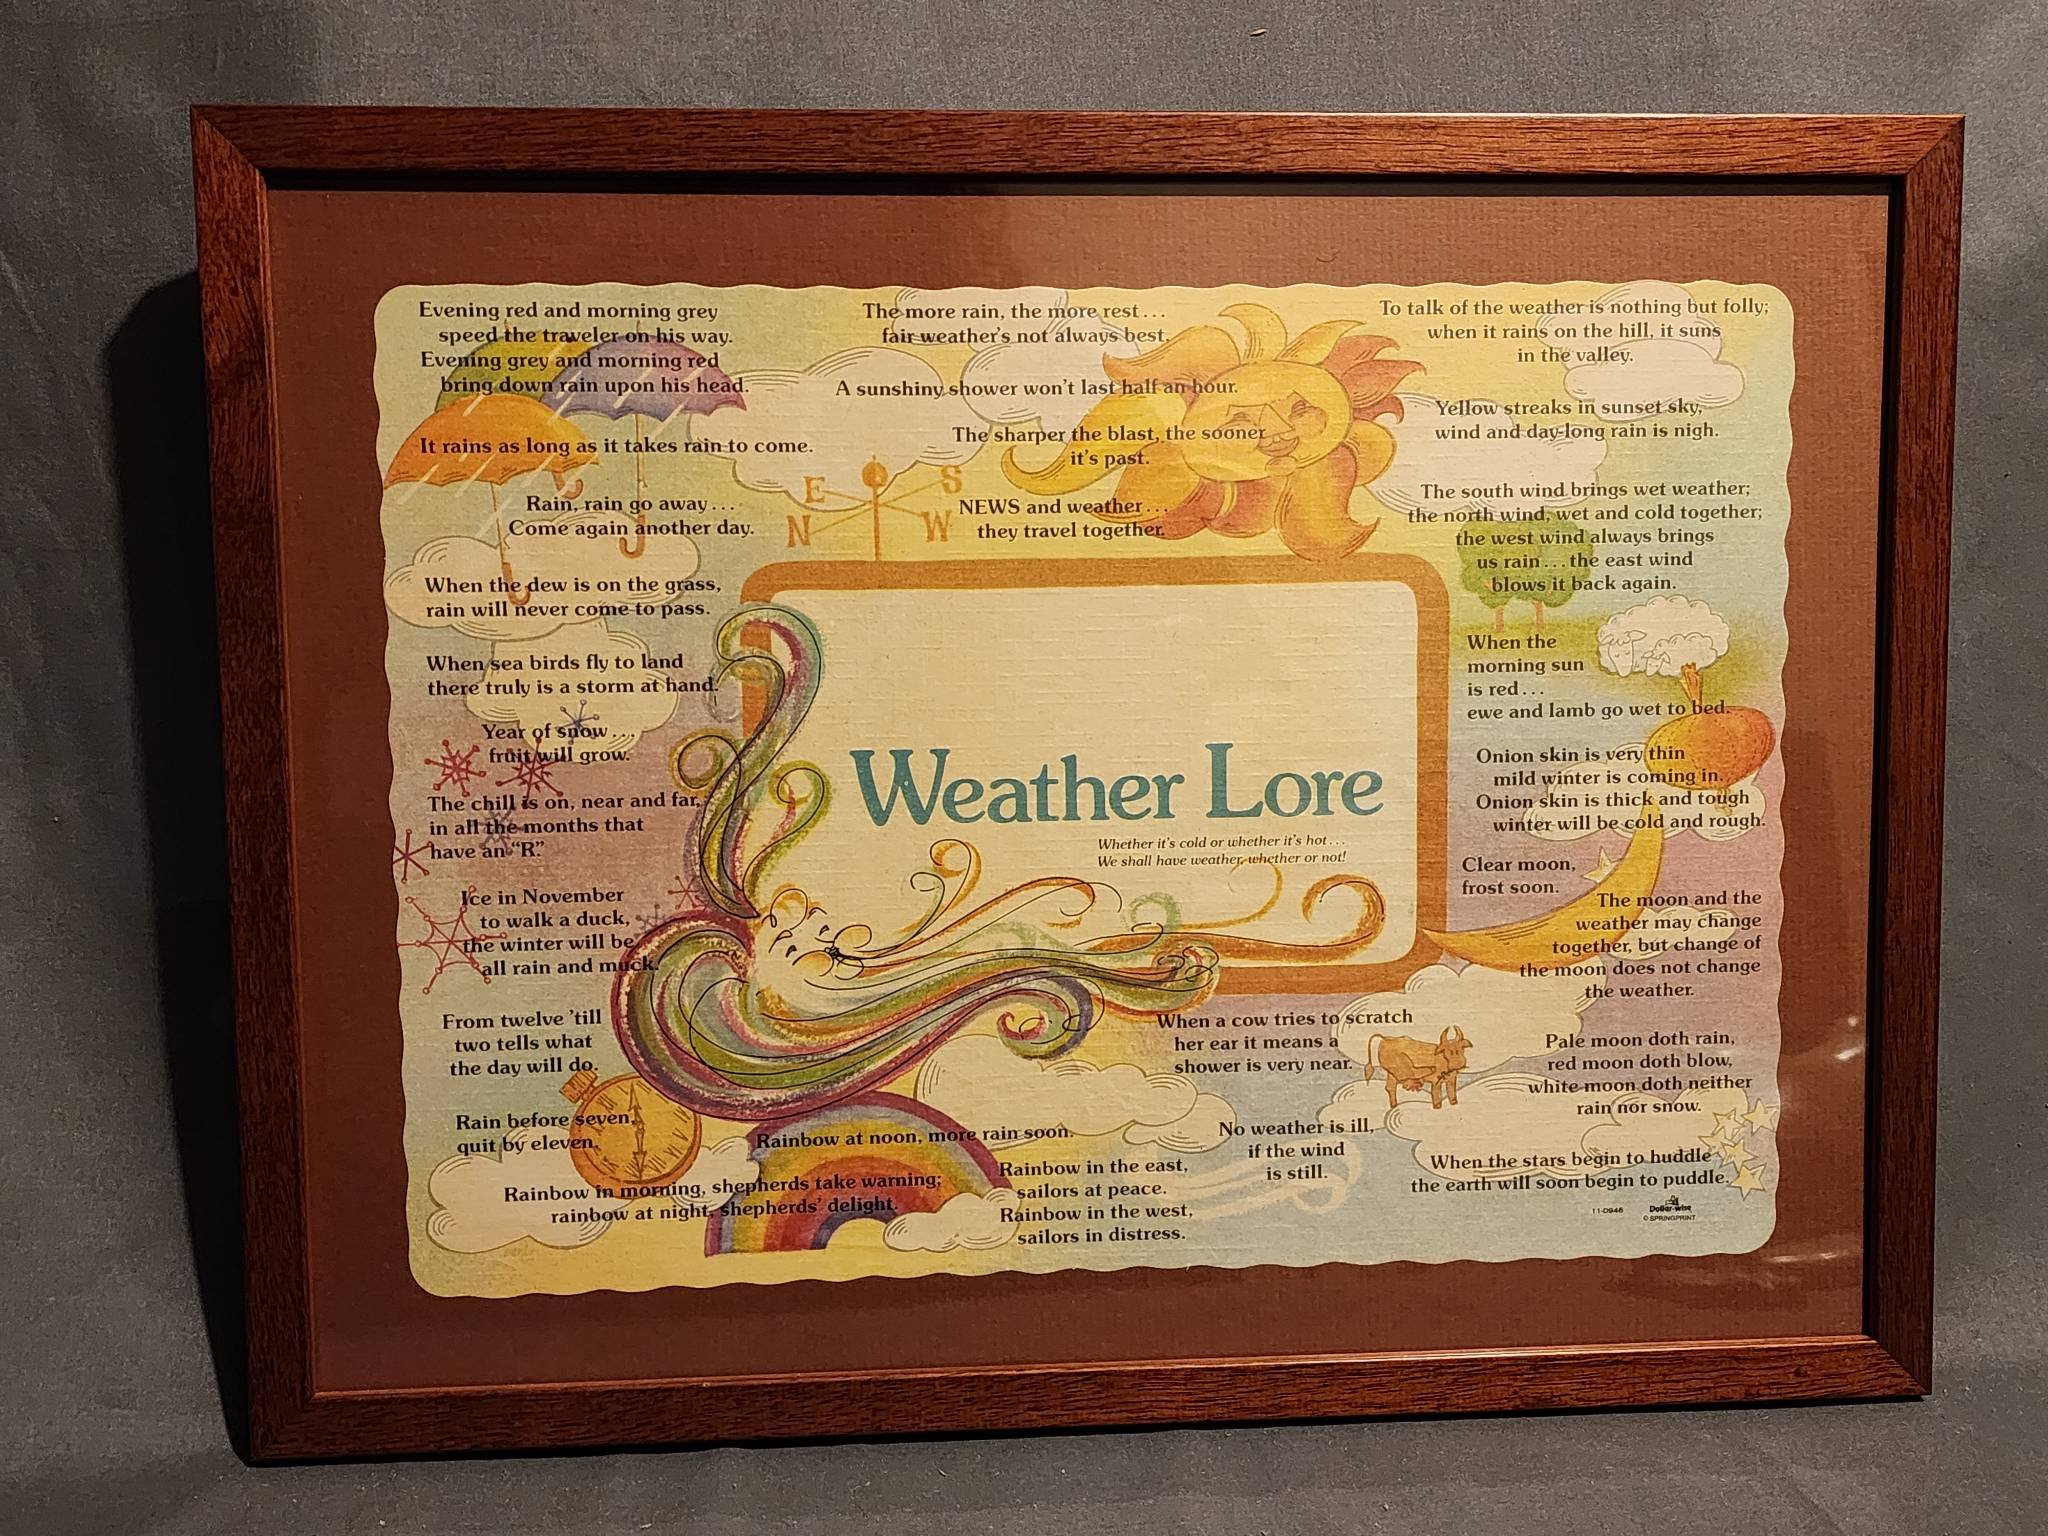 Evening red and morning grey
speed the traveler on his way.
Evening grey and morning red
bring down rain upon his head.
It rains as long as it takes rain to come.
Rain, rain go away...
Come again another day.
When the dew is on the grass,
rain will never come to pass.
When sea birds fly to land
there truly is a storm at hand.
Year of snow...
fruit will grow.
The chill is on, near and far,
in all the months that
have an "R".
Ice in November
to walk a duck,
the winter will be
all rain and muck.
From twelve 'till
two tells what
the day will do.
Rain before seven,
quit by eleven.
Rainbow in morning, shepherds take warning;
rainbow at night, shepherds' delight.
The more rain, the more rest...
fair weather's not always best.
A sunshiny shower won't last half an hour.
The sharper the blast, the sooner
it's past.
E S
N W
NEWS and weather...
they travel together.
Weather Lore
Whether it's cold or whether it's hot...
We shall have weather, whether or not!
Rainbow at noon, more rain soon.
Rainbow in the east,
sailors at peace.
Rainbow in the west,
sailors in distress.
When a cow tries to scratch
her ear it means a
shower is very near.
No weather is ill,
if the wind
is still.
To talk of the weather is nothing but folly;
when it rains on the hill, it suns
in the valley.
Yellow streaks in sunset sky,
wind and day-long rain is nigh.
The south wind brings wet weather;
the north wind, wet and cold together;
the west wind always brings
us rain...the east wind
blows it back again.
When the
morning sun
is red...
ewe and lamb go wet to bed.
Onion skin is very thin
mild winter is coming in.
Onion skin is thick and tough
winter will be cold and rough.
Clear moon,
frost soon.
The moon and the
weather may change
together, but change of
the moon does not change
the weather.
Pale moon doth rain,
red moon doth blow,
white moon doth neither
rain nor snow.
When the stars begin to huddle
the earth will soon begin to puddle.
11-0946
Dollar-wise
© SPRINGPRINT